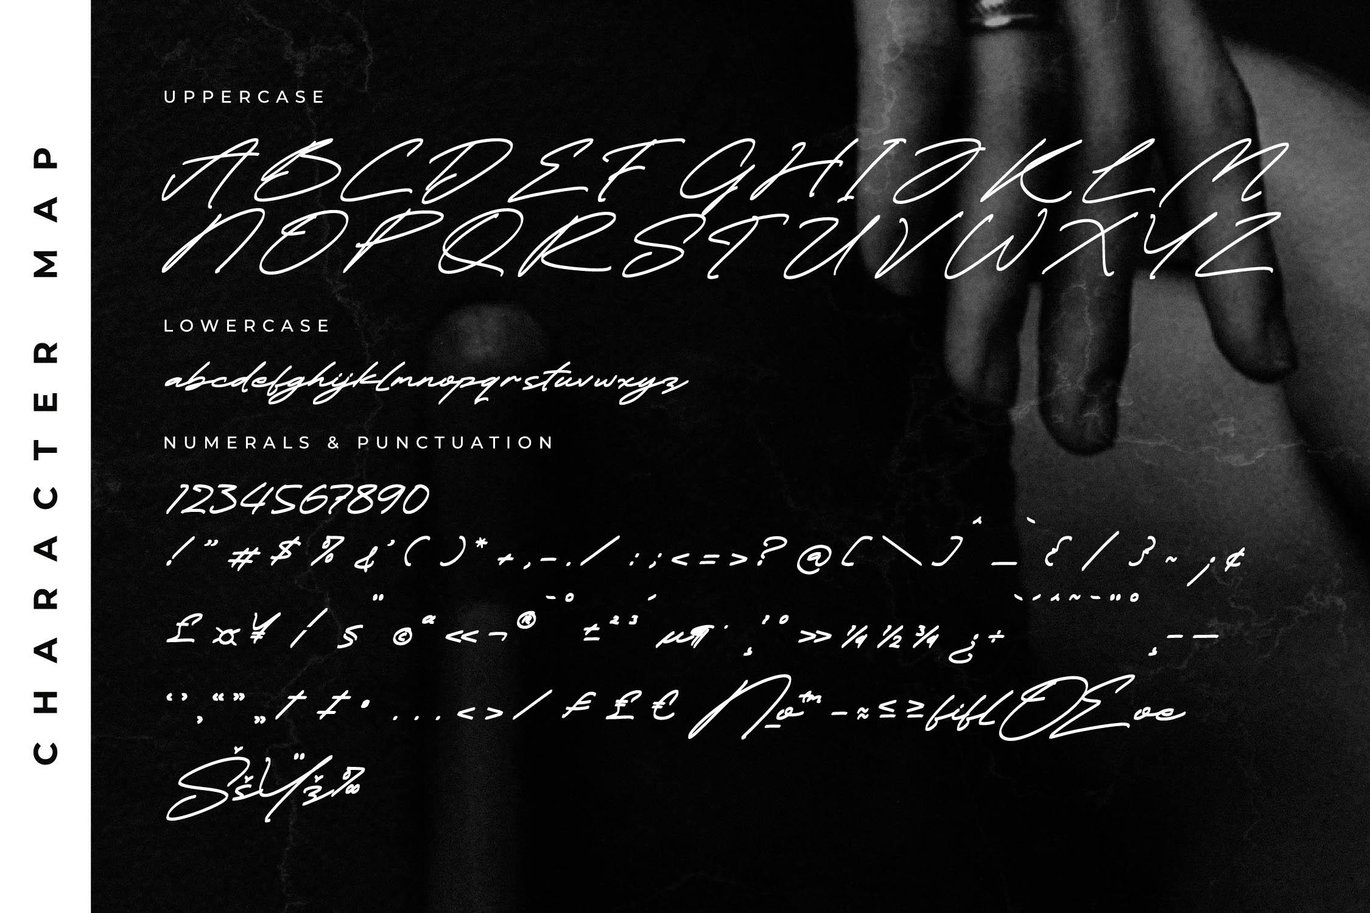 CHARACTER MAP
UPPERCASE
ABCDEFGHIJKLM
NOPQRSTUVWXYZ
LOWERCASE
abcdefghijklmnopqrstuvwxyz
NUMERALS & PUNCTUATION
1234567890
! " # $ % & ' ( ) * + , - . / : ; < = > ? @ [ \ ] ^ _ ` { / } ~ ¡ ¢
£ ¤ ¥ ¦ § ¨ © ª « ¬ ® ¯ ° ± ² ³ ´ µ ¶ · ¸ ¹ º » ¼ ½ ¾ ¿ ÷ ` ´ ^ ~ ¯ ¨ ° ¸ – —
‘ ’ ‚ “ ” „ † ‡ • … ‹ › ⁄ ₣ ₤ € № ™ − ≈ ≤ ≥ fi fl Œ œ
Š š Ÿ ž ‰